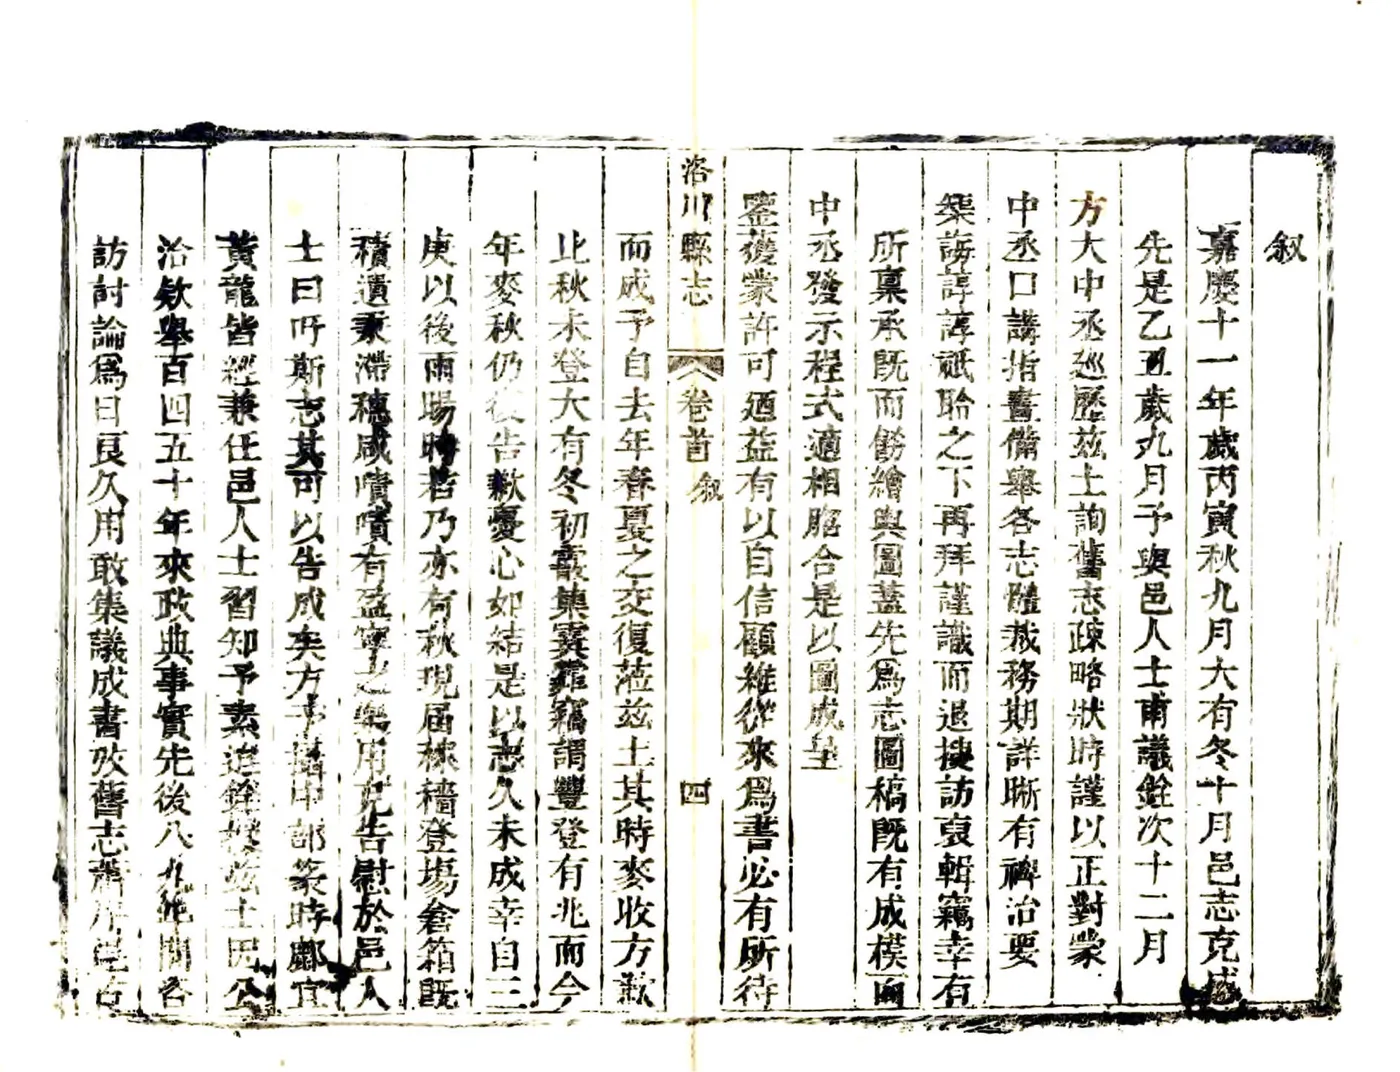 叙
嘉慶十一年歲丙寅秋九月大有冬十月邑志克成
先是乙丑歲九月予與邑人士甫議銓次十二月
方大中丞廵歷玆土詢舊志疎略狀時謹以正對蒙
中丞口講指畫備舉各志體裁務期詳晰有裨治要
榘誨諄諄祗聆之下再拜謹識而退搜訪裒輯竊幸有
所稟承既而餝繪輿圖蓋先爲志圖稿既有成模而
中丞發示程式適相脗合是以圖成呈
鑒獲蒙許可廼益有以自信顧維從來爲書必有所待
洛川縣志 卷首 叙 四
而成予自去年春夏之交復蒞玆土其時麥收方歉
比秋未登大有冬初霰集霙霏竊謂豐登有兆而今
年麥秋仍復告歉憂心如結是以志久未成幸自三
庚以後雨暘時若乃亦有秋現届秾穡登場倉箱既
積遺秉滯穗咸嘖嘖有盈寧之樂用克告慰於邑人
士曰吁斯志其可以告成矣方予攝中部篆時鄜宜
黃龍皆經兼任邑人士習知予素進銓於玆土民公
洽欸舉百四五十年來政典事實先後八九紀間咨
訪討論爲日良久用敢集議成書攷舊志